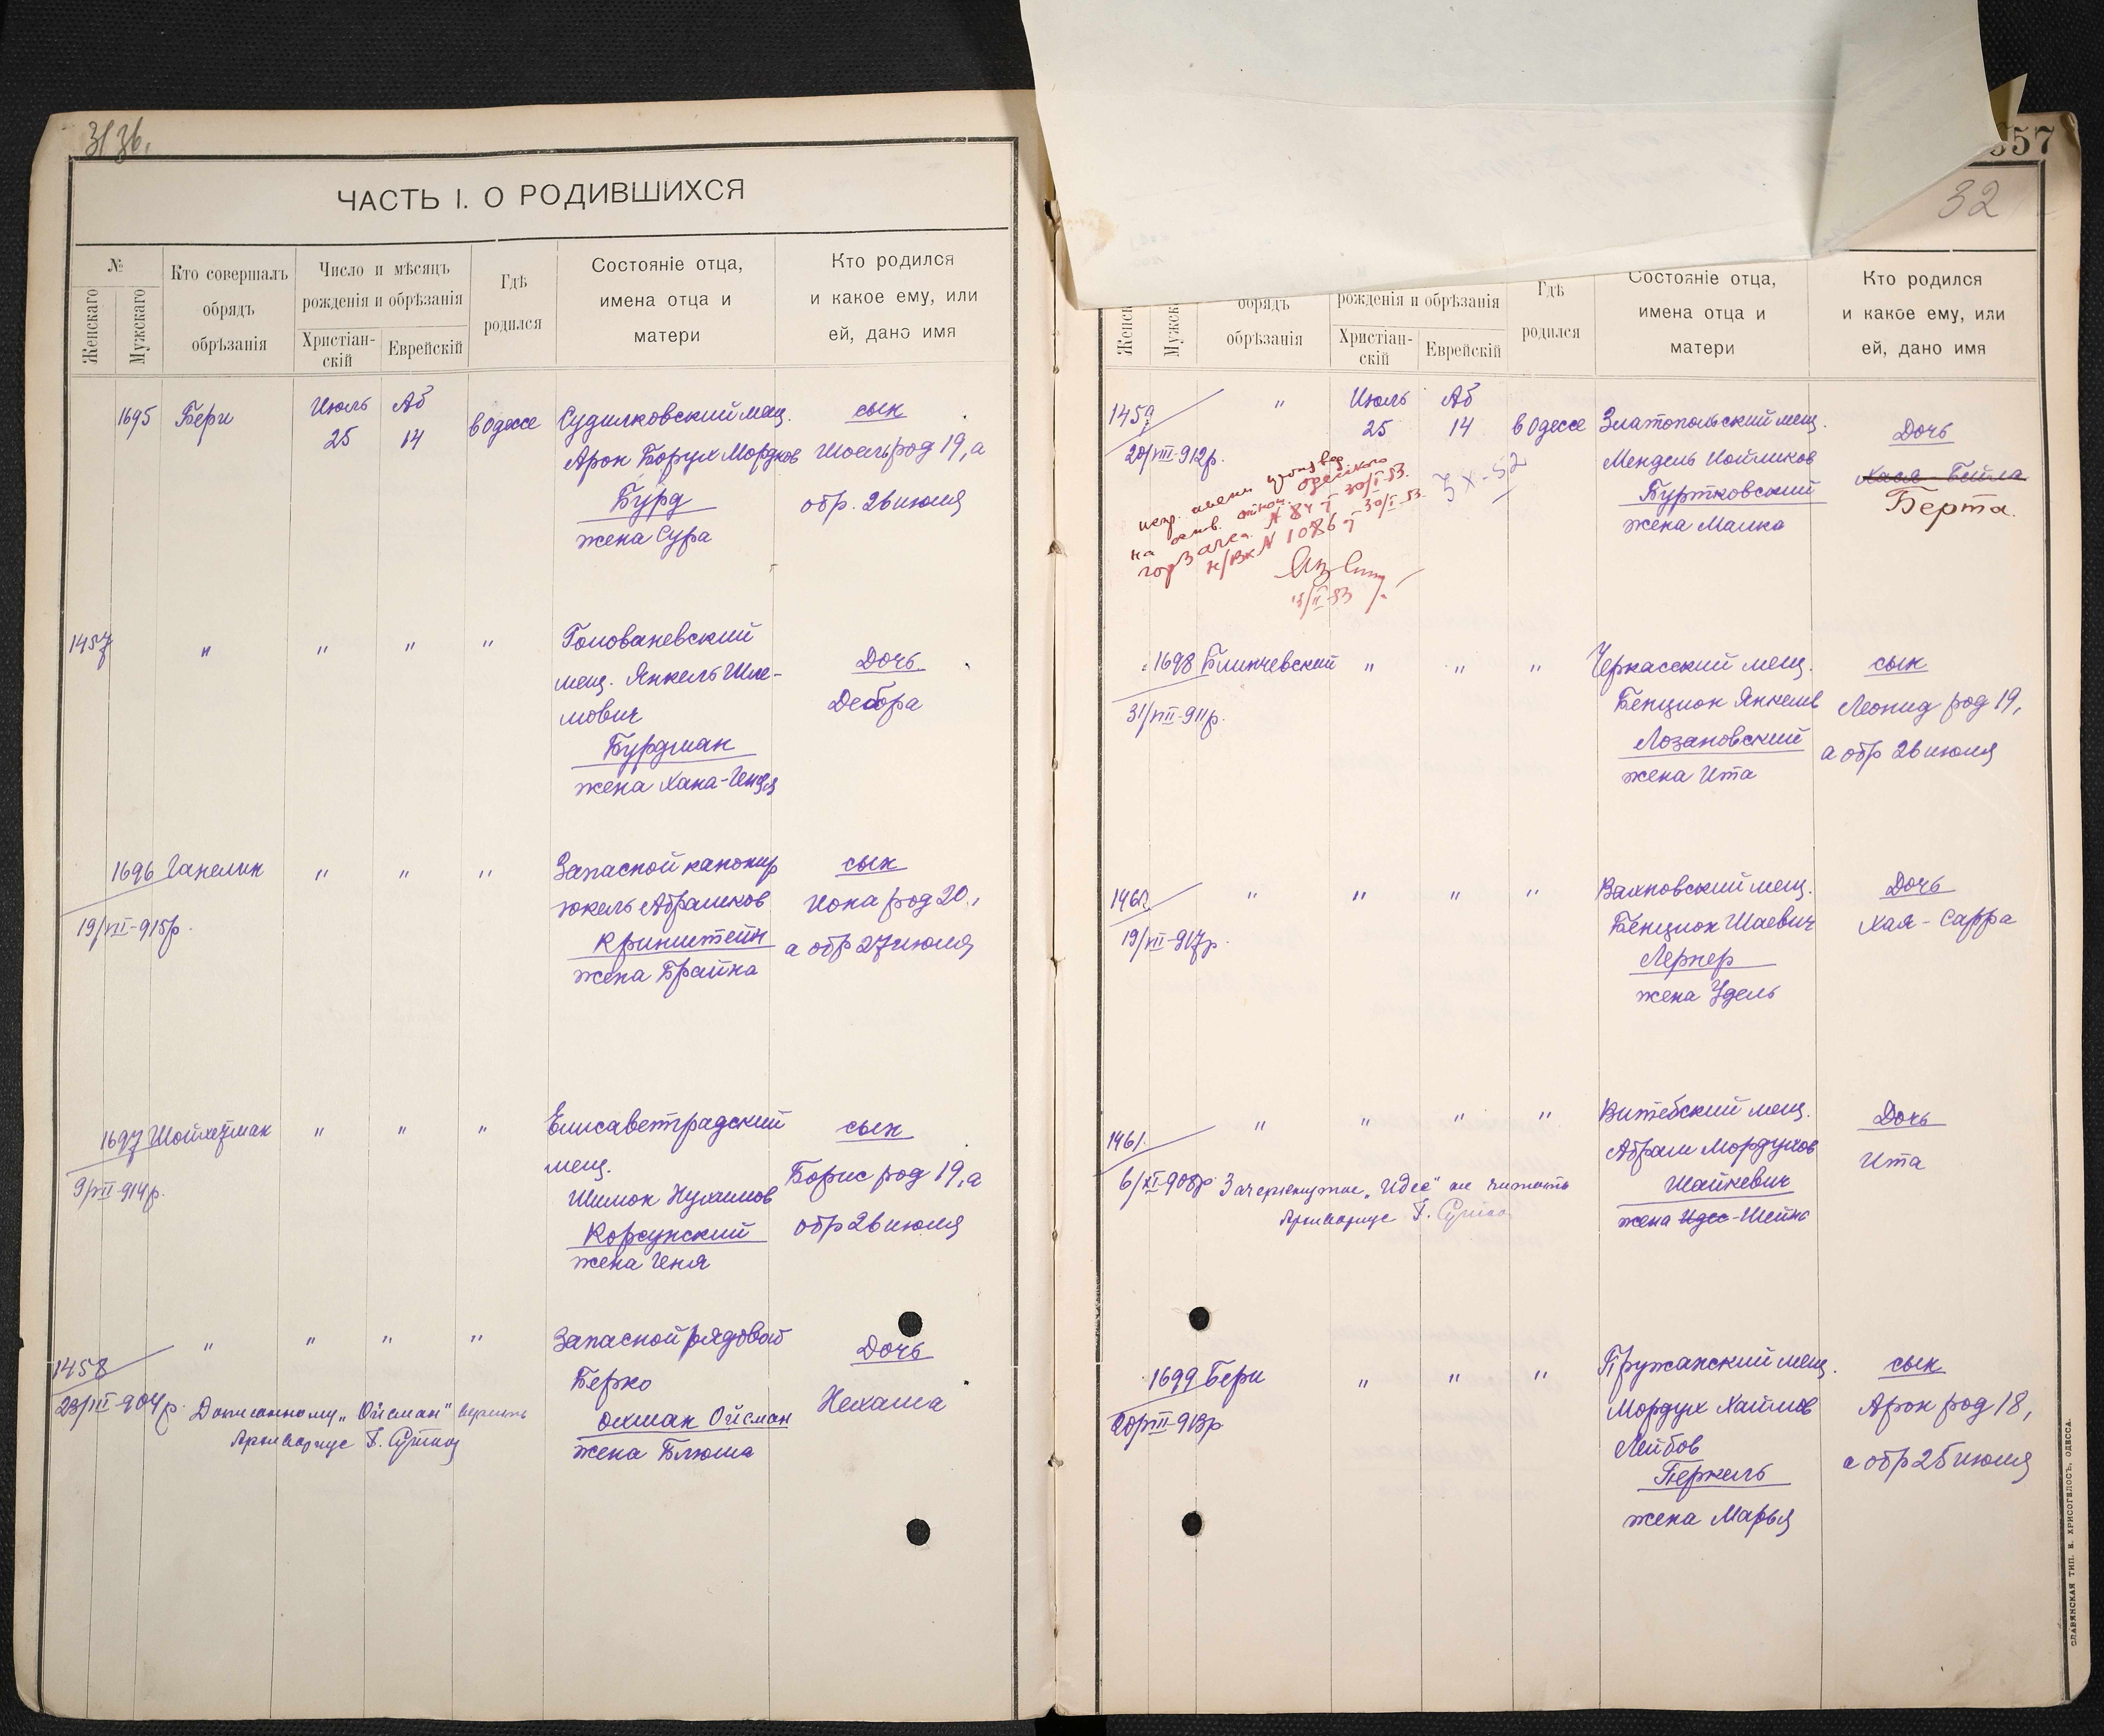 31 зв.
ЧАСТЬ I. О РОДИВШИХСЯ
№
Женскаго
Мужскаго
Кто совершалъ
обрядъ
обрѣзанія
Число и мѣсяцъ
рожденія и обрѣзанія
Христіан-
скій
Еврейскій
Гдѣ
родился
Состояніе отца,
имена отца и
матери
Кто родился
и какое ему, или
ей, дано имя
1695 Бери
Июль 25
Аб 14
в Одессе
Судилковский мещ.
Арон Борух Мордков
Бурд
жена Сура
сын
Июель род 19, а
обр. 26 июля
1457
" " " "
Голованевский
мещ. Янкель Шле-
мович
Бурдман
жена Хана-Генця
Дочь
Дебора
1696 Ганелин
19/VII-915р.
" " "
Запасной канонир
Юкель Абрамков
Кринштейн
жена Брайна
сын
Иона род 20,
а обр 27 июля
1697 Шойхетман
9/VII-914р.
" " "
Елисаветградский
мещ.
Шимон Нухимов
Корсунский
жена Геня
сын
Борис род 19, а
обр 26 июля
1458
23/III-904р.
" " " "
Дописанному "Ойсман" верить
Г.
Запасной рядовой
Берко
Ойсман
жена Блюма
Дочь
Нехама
657
32
обрядъ
обрѣзанія
рожденія и обрѣзанія
Христіан-
скій
Еврейскій
Гдѣ
родился
Состояніе отца,
имена отца и
матери
Кто родился
и какое ему, или
ей, дано имя
1459
20/VIII-912р.
"
Июль 25
Аб 14
в Одессе
Златопольский мещ.
Мендель Иойликов
Буртковский
жена Малка
Дочь
Хая Бейла
Берта.
испр. имени произвед
на оснв. отнош. одесского
горЗагса № 84 30/I-53.
н/Вх № 1086 30/I-53.
13/II-53
1698 Блинчевский
31/VIII-911р.
" " "
Черкасский мещ.
Бенцион Янкелев
Лозановский
жена Ита
сын
Леонид род 19,
а обр 26 июля
1460
19/VII-917р.
" " " "
Вахновский мещ.
Бенцион Шаевич
Лернер
жена Удель
Дочь
Хая-Сарра
1461.
6/XI-908р.
" " " "
Зачеркнутое "Идес" не читать
Г.
Витебский мещ.
Абрам Мордухов
Шайкевич
жена Идес-Шейна
Дочь
Ита
1699 Бери
20/VII-913р
" " "
Пружанский мещ.
Мордух Хаимов
Лейбов
Перкель
жена Марья
сын
Арон род 18,
а обр 25 июля
СЛАВЯНСКАЯ ТИП. Е. ХРИСОГЕЛОСЪ, ОДЕССА.